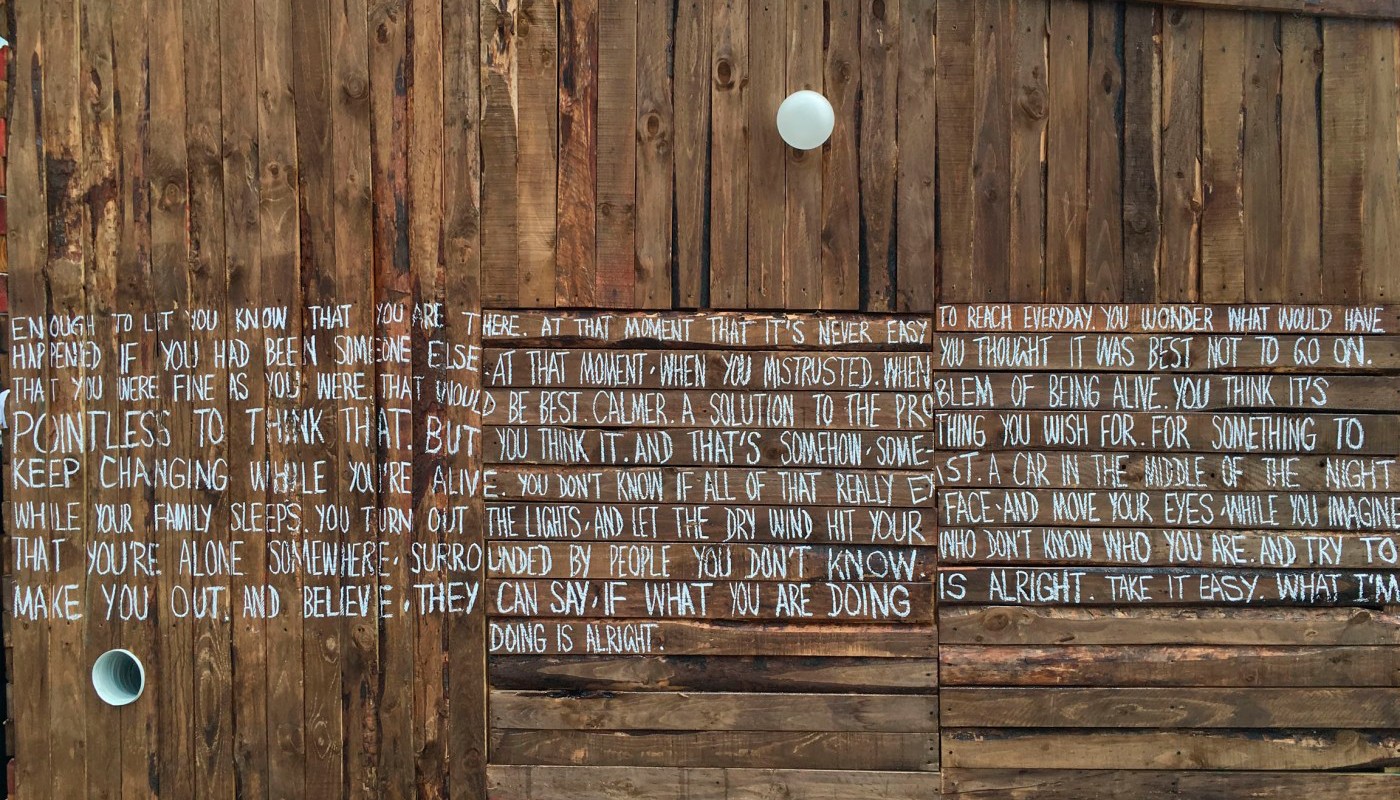 ENOUGH TO LET YOU KNOW THAT YOU ARE THERE. AT THAT MOMENT THAT IT'S NEVER EASY TO REACH EVERYDAY. YOU WONDER WHAT WOULD HAVE
HAPPENED IF YOU HAD BEEN SOMEONE ELSE AT THAT MOMENT, WHEN YOU MISTRUSTED. WHEN YOU THOUGHT IT WAS BEST NOT TO GO ON.
THAT YOU WERE FINE AS YOU WERE THAT WOULD BE BEST. CALMER. A SOLUTION TO THE PROBLEM OF BEING ALIVE. YOU THINK IT'S
POINTLESS TO THINK THAT. BUT YOU THINK IT. AND THAT'S SOMEHOW, SOMETHING YOU WISH FOR. FOR SOMETHING TO
KEEP CHANGING WHILE YOU'RE ALIVE. YOU DON'T KNOW IF ALL OF THAT REALLY EXIST. A CAR IN THE MIDDLE OF THE NIGHT
WHILE YOUR FAMILY SLEEPS. YOU TURN OUT THE LIGHTS, AND LET THE DRY WIND HIT YOUR FACE, AND MOVE YOUR EYES, WHILE YOU IMAGINE
THAT YOU'RE ALONE SOMEWHERE, SURROUNDED BY PEOPLE YOU DON'T KNOW. WHO DON'T KNOW WHO YOU ARE. AND TRY TO
MAKE YOU OUT. AND BELIEVE, THEY CAN SAY, IF WHAT YOU ARE DOING IS ALRIGHT. TAKE IT EASY. WHAT I'M
DOING IS ALRIGHT.